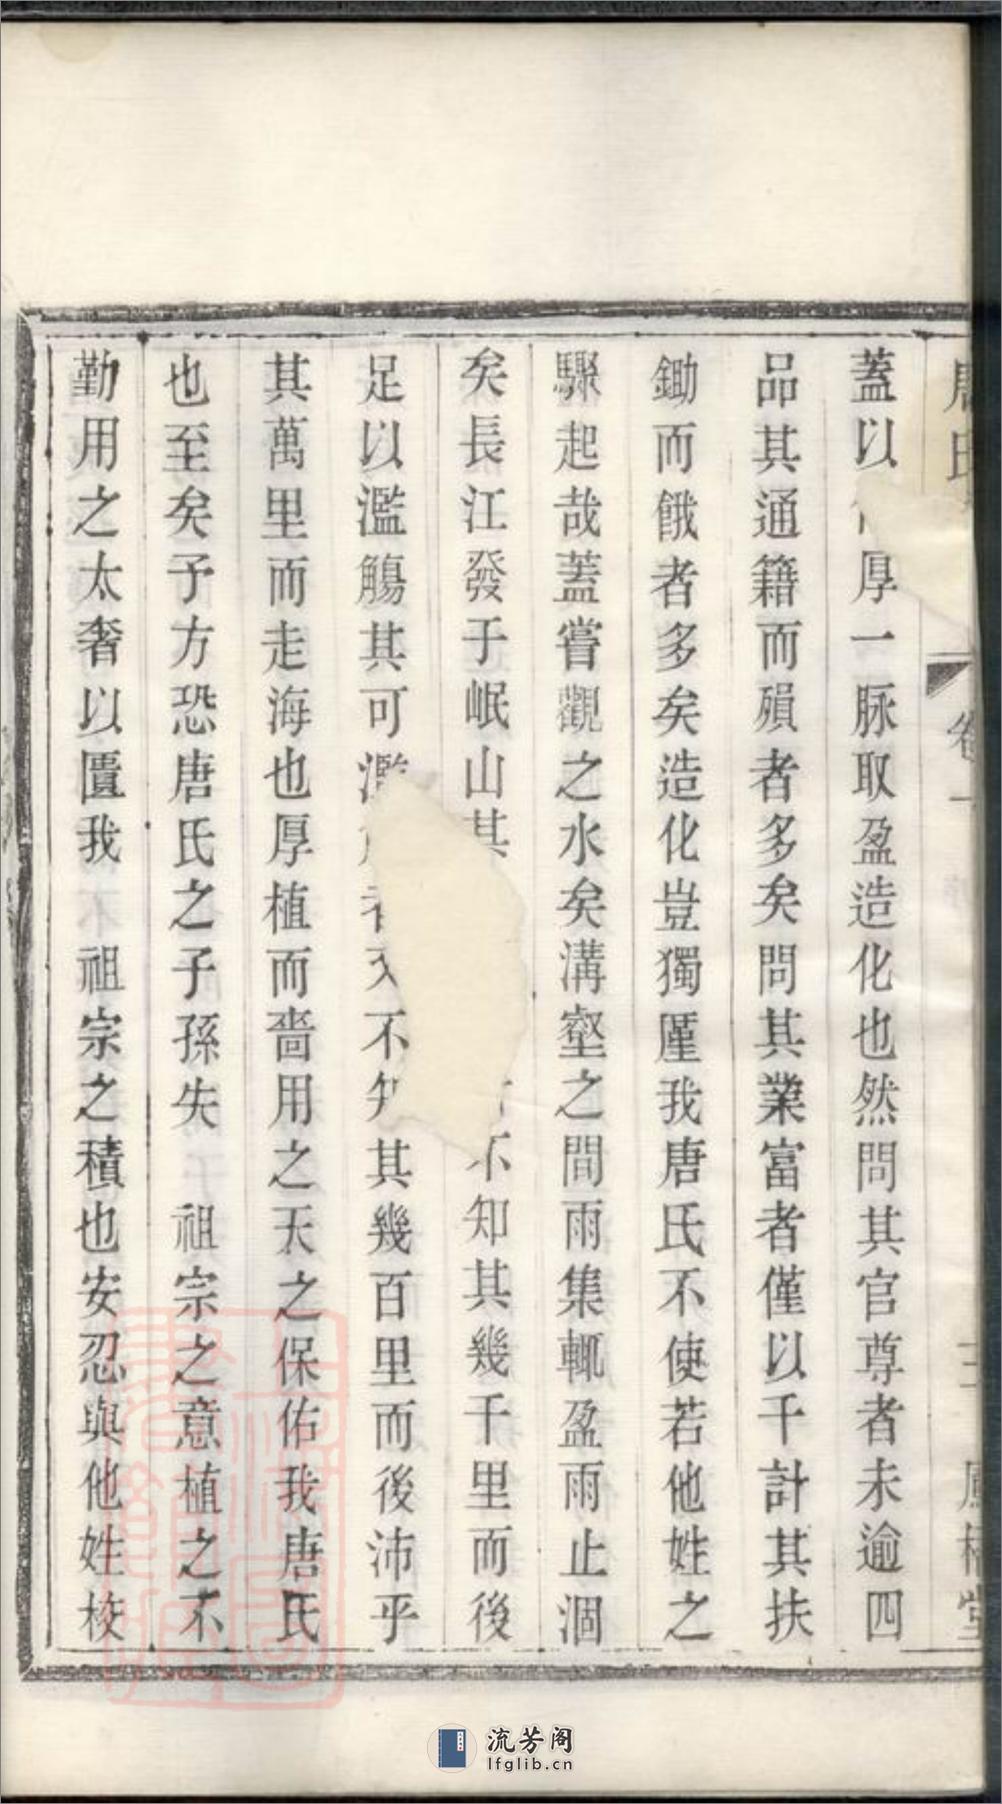 氏
卷一
三
堂
蓋以厚一脉取盈造化也然問其官尊者未逾四
品其通籍而殞者多矣問其業富者僅以千計其扶
鋤而餓者多矣造化豈獨厪我唐氏不使若他姓之
驟起哉蓋嘗觀之水矣溝壑之間雨集輒盈雨止涸
矣長江發于岷山其不知其幾千里而後
足以濫觴其可濫不知其幾百里而後沛乎
其萬里而走海也厚植而嗇用之天之保佑我唐氏
也至矣予方恐唐氏之子孫失 祖宗之意植之不
勤用之太奢以匱我 祖宗之積也安忍與他姓校
流芳阁
lfglib.cn